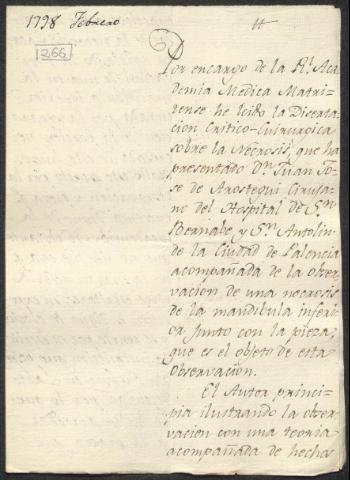 1798 Febrero
266
#
Por encargo de la Rl. Aca
demia Medica Matri=
tense he leido la Diserta=
cion Critico-Chirurgica
sobre la Necrosis, que ha
presentado Dn. Juan Jo=
se de Arostegui Ciruja=
no del Hospital de Sn.
Bernabe, y Sn. Antolin
de la Ciudad de Palencia
acompañada de la obser=
vacion de una necrosis
de la mandibula inferi=
or junto con la pieza,
que es el objeto de esta
Observacion.
El Autor princi=
pia ilustrando la obser=
vacion con una teoria
acompañada de hechos